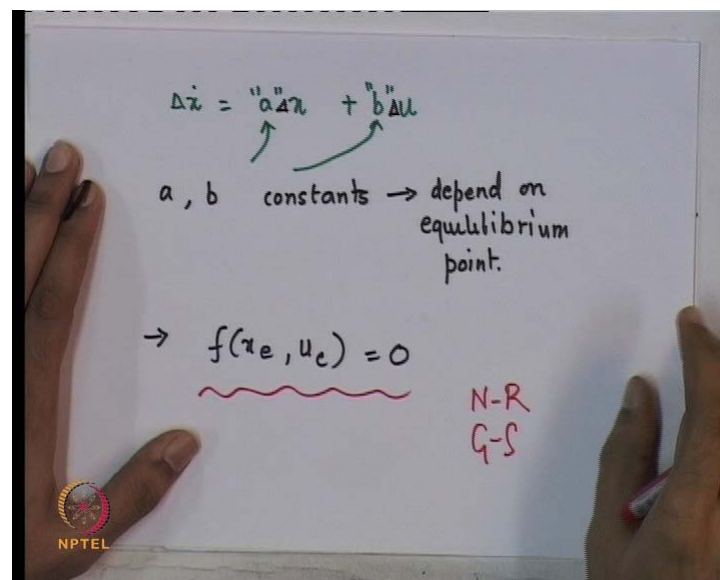 Δẋ = "a"Δx + "b"Δu
a, b constants → depend on
equilibrium
point.
→ f(xe, ue) = 0
N-R
G-S
NPTEL